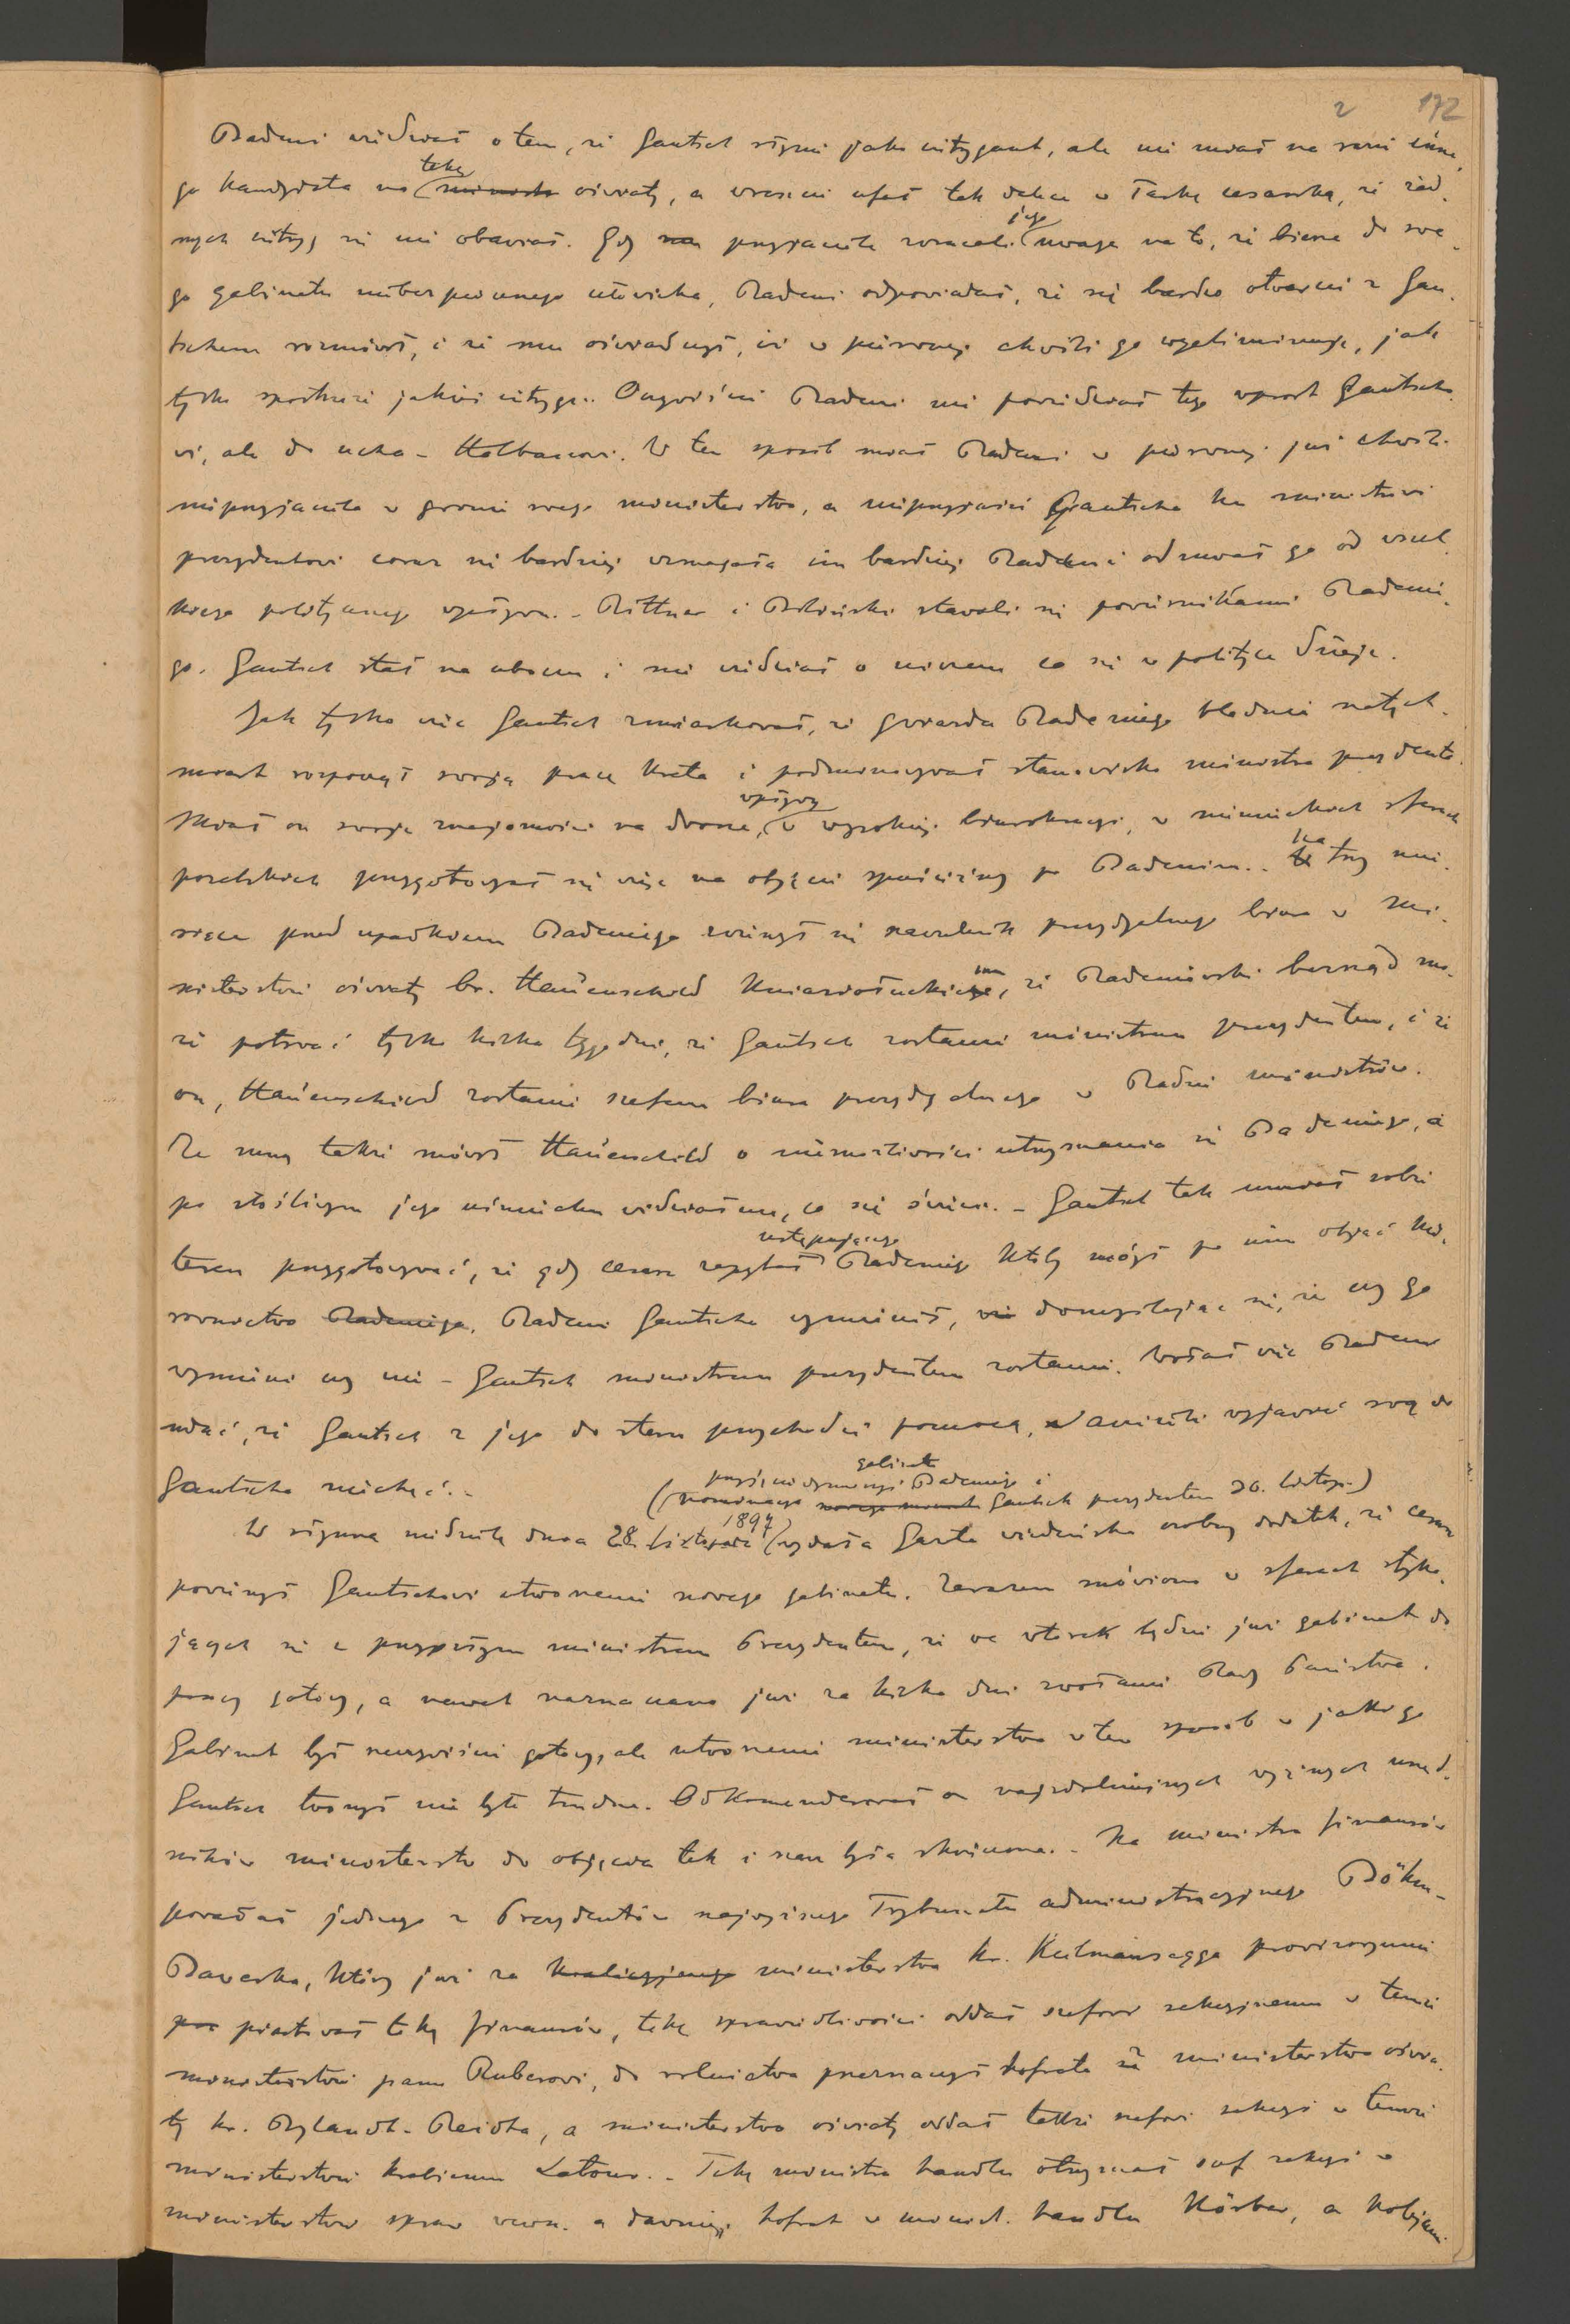 2 172
Badeni wiedział o tem, że Gautsch słynie jako intrygant, ale nie miał na razie inne-
go kandydata na tekę ministra oświaty, a wreszcie ufał tak dalece w łaskę cesarską, że żad-
nych intryg się nie obawiał. Gdy mu przyjaciele zwracali jego uwagę na to, że bierze do swe-
go gabinetu niebezpiecznego człowieka, Badeni odpowiadał, że się bardzo otwarcie z Gau-
tschem rozmówił, i że mu oświadczył, iż w pierwszej chwili go wyeliminuje, jak
tylko spostrzeże jakieś intrygi. Oczywiście Badeni nie powiedział tego wprost Gautscho-
wi, ale do ucha - Halbanowi. W ten sposób miał Badeni w pierwszej już chwili
nieprzyjaciela w gronie swego ministerstwa, a nieprzyjaźń Gautscha ku ministrowi
prezydentowi coraz się bardziej wzmagała im bardziej Badeni odsuwał go od wszel-
kiego politycznego wpływu. - Rittner i Biliński stawali się powiernikami Badenie-
go. Gautsch stał na uboczu i nie wiedział o niczem co się w polityce dzieje.
Jak tylko więc Gautsch zmiarkował, że gwiazda Badeniego blednie natych-
miast rozpoczął swoją pracę kreta i podminowywał stanowisko ministra prezydenta.
Miał on swoje znajomości na dworze, wpływy w wysokiej biurokracyi, w niemieckich sferach
poselskich przygotowywał się więc na objęcie spuścizny po Badenim. Na trzy mie-
siące przed upadkiem Badeniego zwierzył się naczelnik prezydyalnego biura w mi-
nisterstwie oświaty br. Haüenschild Kniaziołuckiemu, że Badeniowski bezrząd mo-
że potrwać tylko kilka tygodni, że Gautsch zostanie ministrem prezydentem, i że
on, Haüenschild zostanie szefem biura prezydyalnego w Radzie ministrów.
Ze mną także mówił Haüenschild o niemożliwości utrzymania się Badeniego, a
po złośliwym jego uśmiechu widziałem, co się święci. - Gautsch tak umiał sobie
teren przygotowywać, że gdy cesarz zapytał ustępującego Badeniego ktoby mógł po nim objąć kie-
rownictwo Badeniego, Badeni Gautscha wymienił, nie domyślając się, że czy go
wymieni czy nie - Gautsch ministrem prezydentem zostanie. Wolał więc Badeni
udać, że Gautsch z jego do steru przychodzi pomocą, aniżeli wyjawić swą do
Gautscha niechęć. -
(przyjęcie dymisyi gabinetu Badeniego i nominacya nowego Gautsch prezydentem 30. listop.)
W słynną niedzielę dnia 28. listopada 1897 wydała Gazeta wiedeńska osobny dodatek, że cesarz
powierzył Gautschowi utworzenie nowego gabinetu. Zarazem mówiono w sferach styka-
jących się z przyszłym ministrem Prezydentem, że we wtorek będzie już gabinet do
pracy gotowy, a nawet naznaczono już za kilka dni zwołanie Rady Państwa.
Gabinet był rzeczywiście gotowy, ale utworzenie ministerstwa w ten sposób w jaki go
Gautsch tworzył nie było trudne. Odkomenderował on najzdolniejszych wyższych urzęd-
ników ministerstw do objęcia tek i rzecz była skończona. - Na ministra finansów
powołał jednego z Prezydentów najwyższego Trybunału administracyjnego Böhm-
Bawerka, który już za koalicyjnego ministerstwa hr. Kielmansegga prowizorycznie
piastował tekę finansów, tekę sprawiedliwości oddał szefowi sekcyjnemu w temże
ministerstwie panu Ruberowi, do rolnictwa przeznaczył hofrata z ministerstwa oświa-
ty hr. Bylandt-Reidta, a ministerstwo oświaty oddał także szefowi sekcyi w temże
ministerstwie hrabiemu Latour. - Tekę ministra handlu otrzymał szef sekcyi w
ministerstwie spraw wewn. a dawniej hofrat w minist. handlu Körber, a kolejami